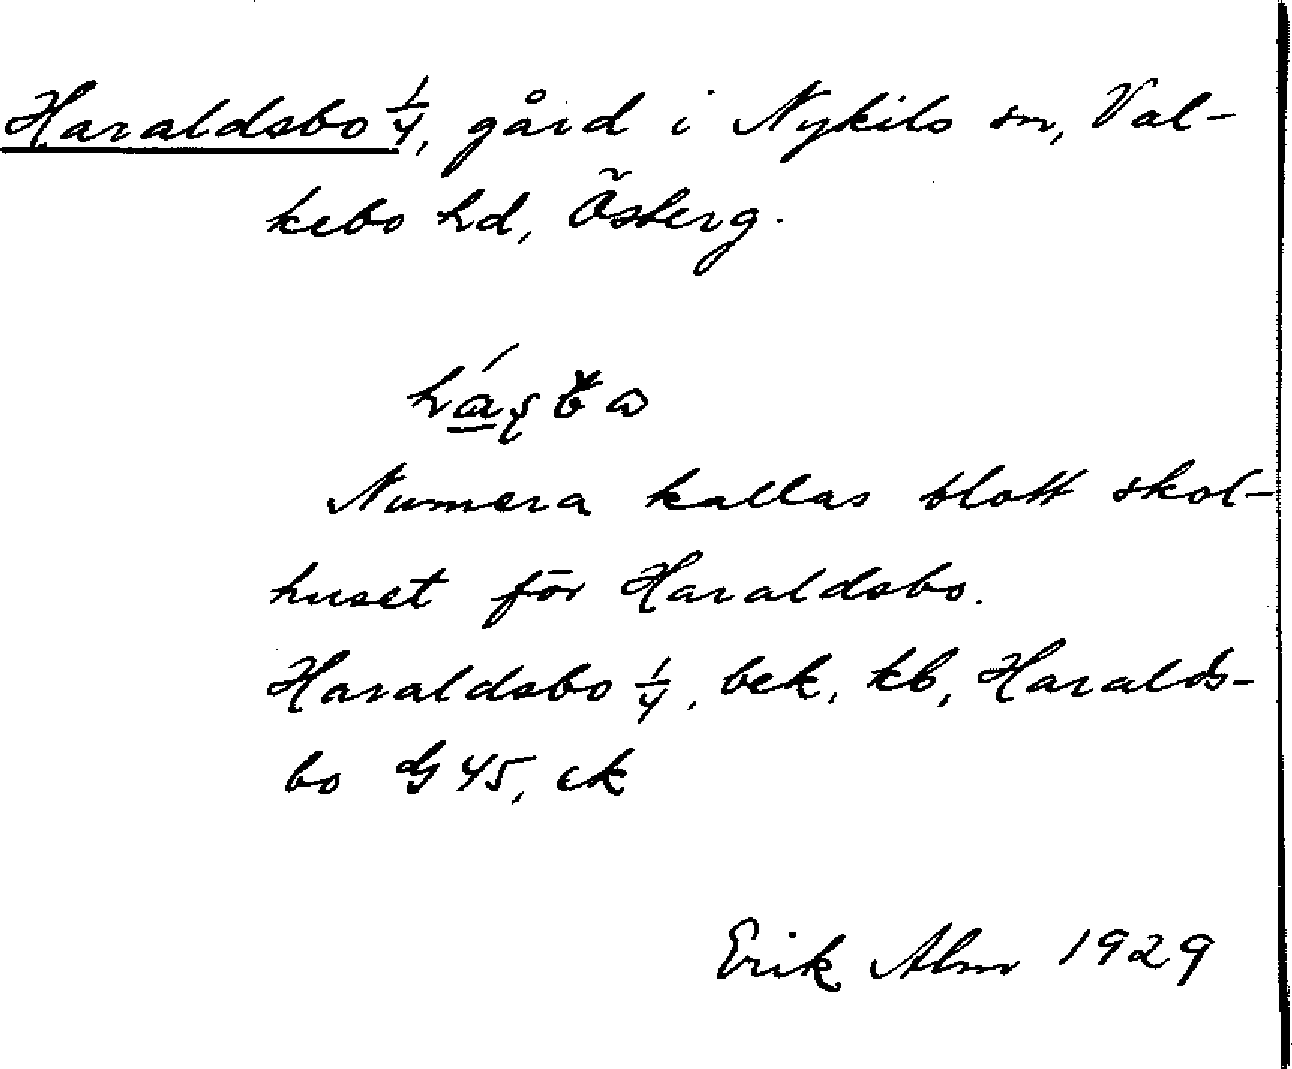 Haraldsbo 1/4, gård i Nykils sn, Val-
kebo hd, Österg.
Numera kallas blott skol-
huset för Haraldsbo.
Haraldsbo 1/4, bek, kb, Haralds-
bo G 45, ek
Erik Alm 1929